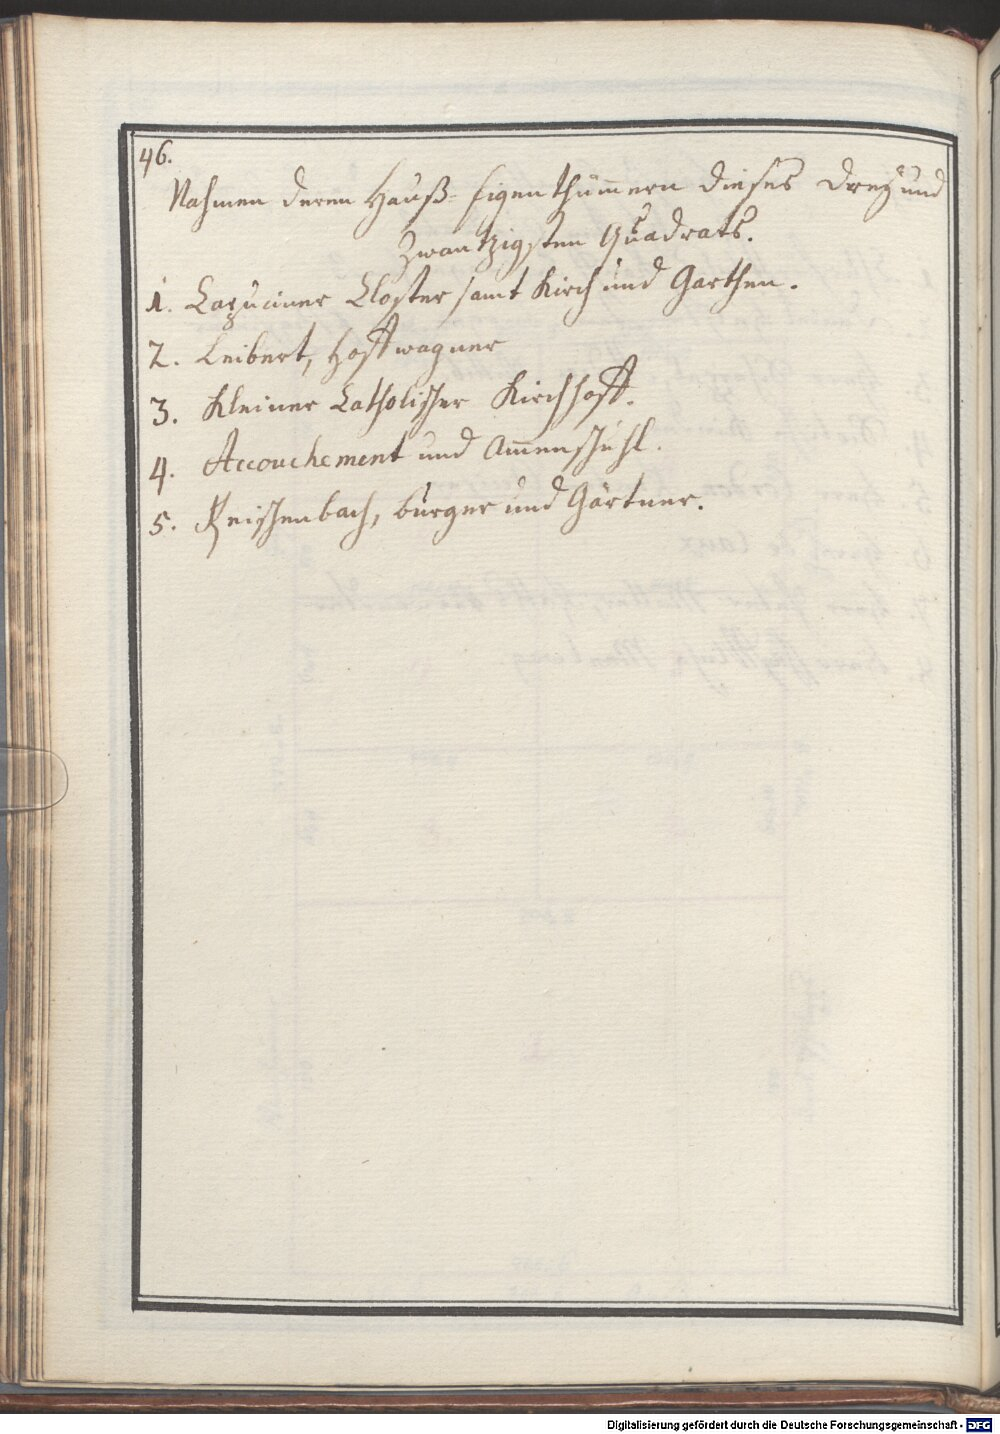 46.
Nahmen deren Hauß-Eigenthümern dieses Dreÿ und
Zwantzigsten Quadrats.
1. Capuciner Closter samt Kirch und Garthen.
2. Leibert, Hoffwagner
3. Kleiner Catholischer Kirchhoff.
4. Accouchement und Am̅enschuhl.
5. Reichenbach, burger und Gärtner.
Digitalisierung gefördert durch die Deutsche Forschungsgemeinschaft - DFG